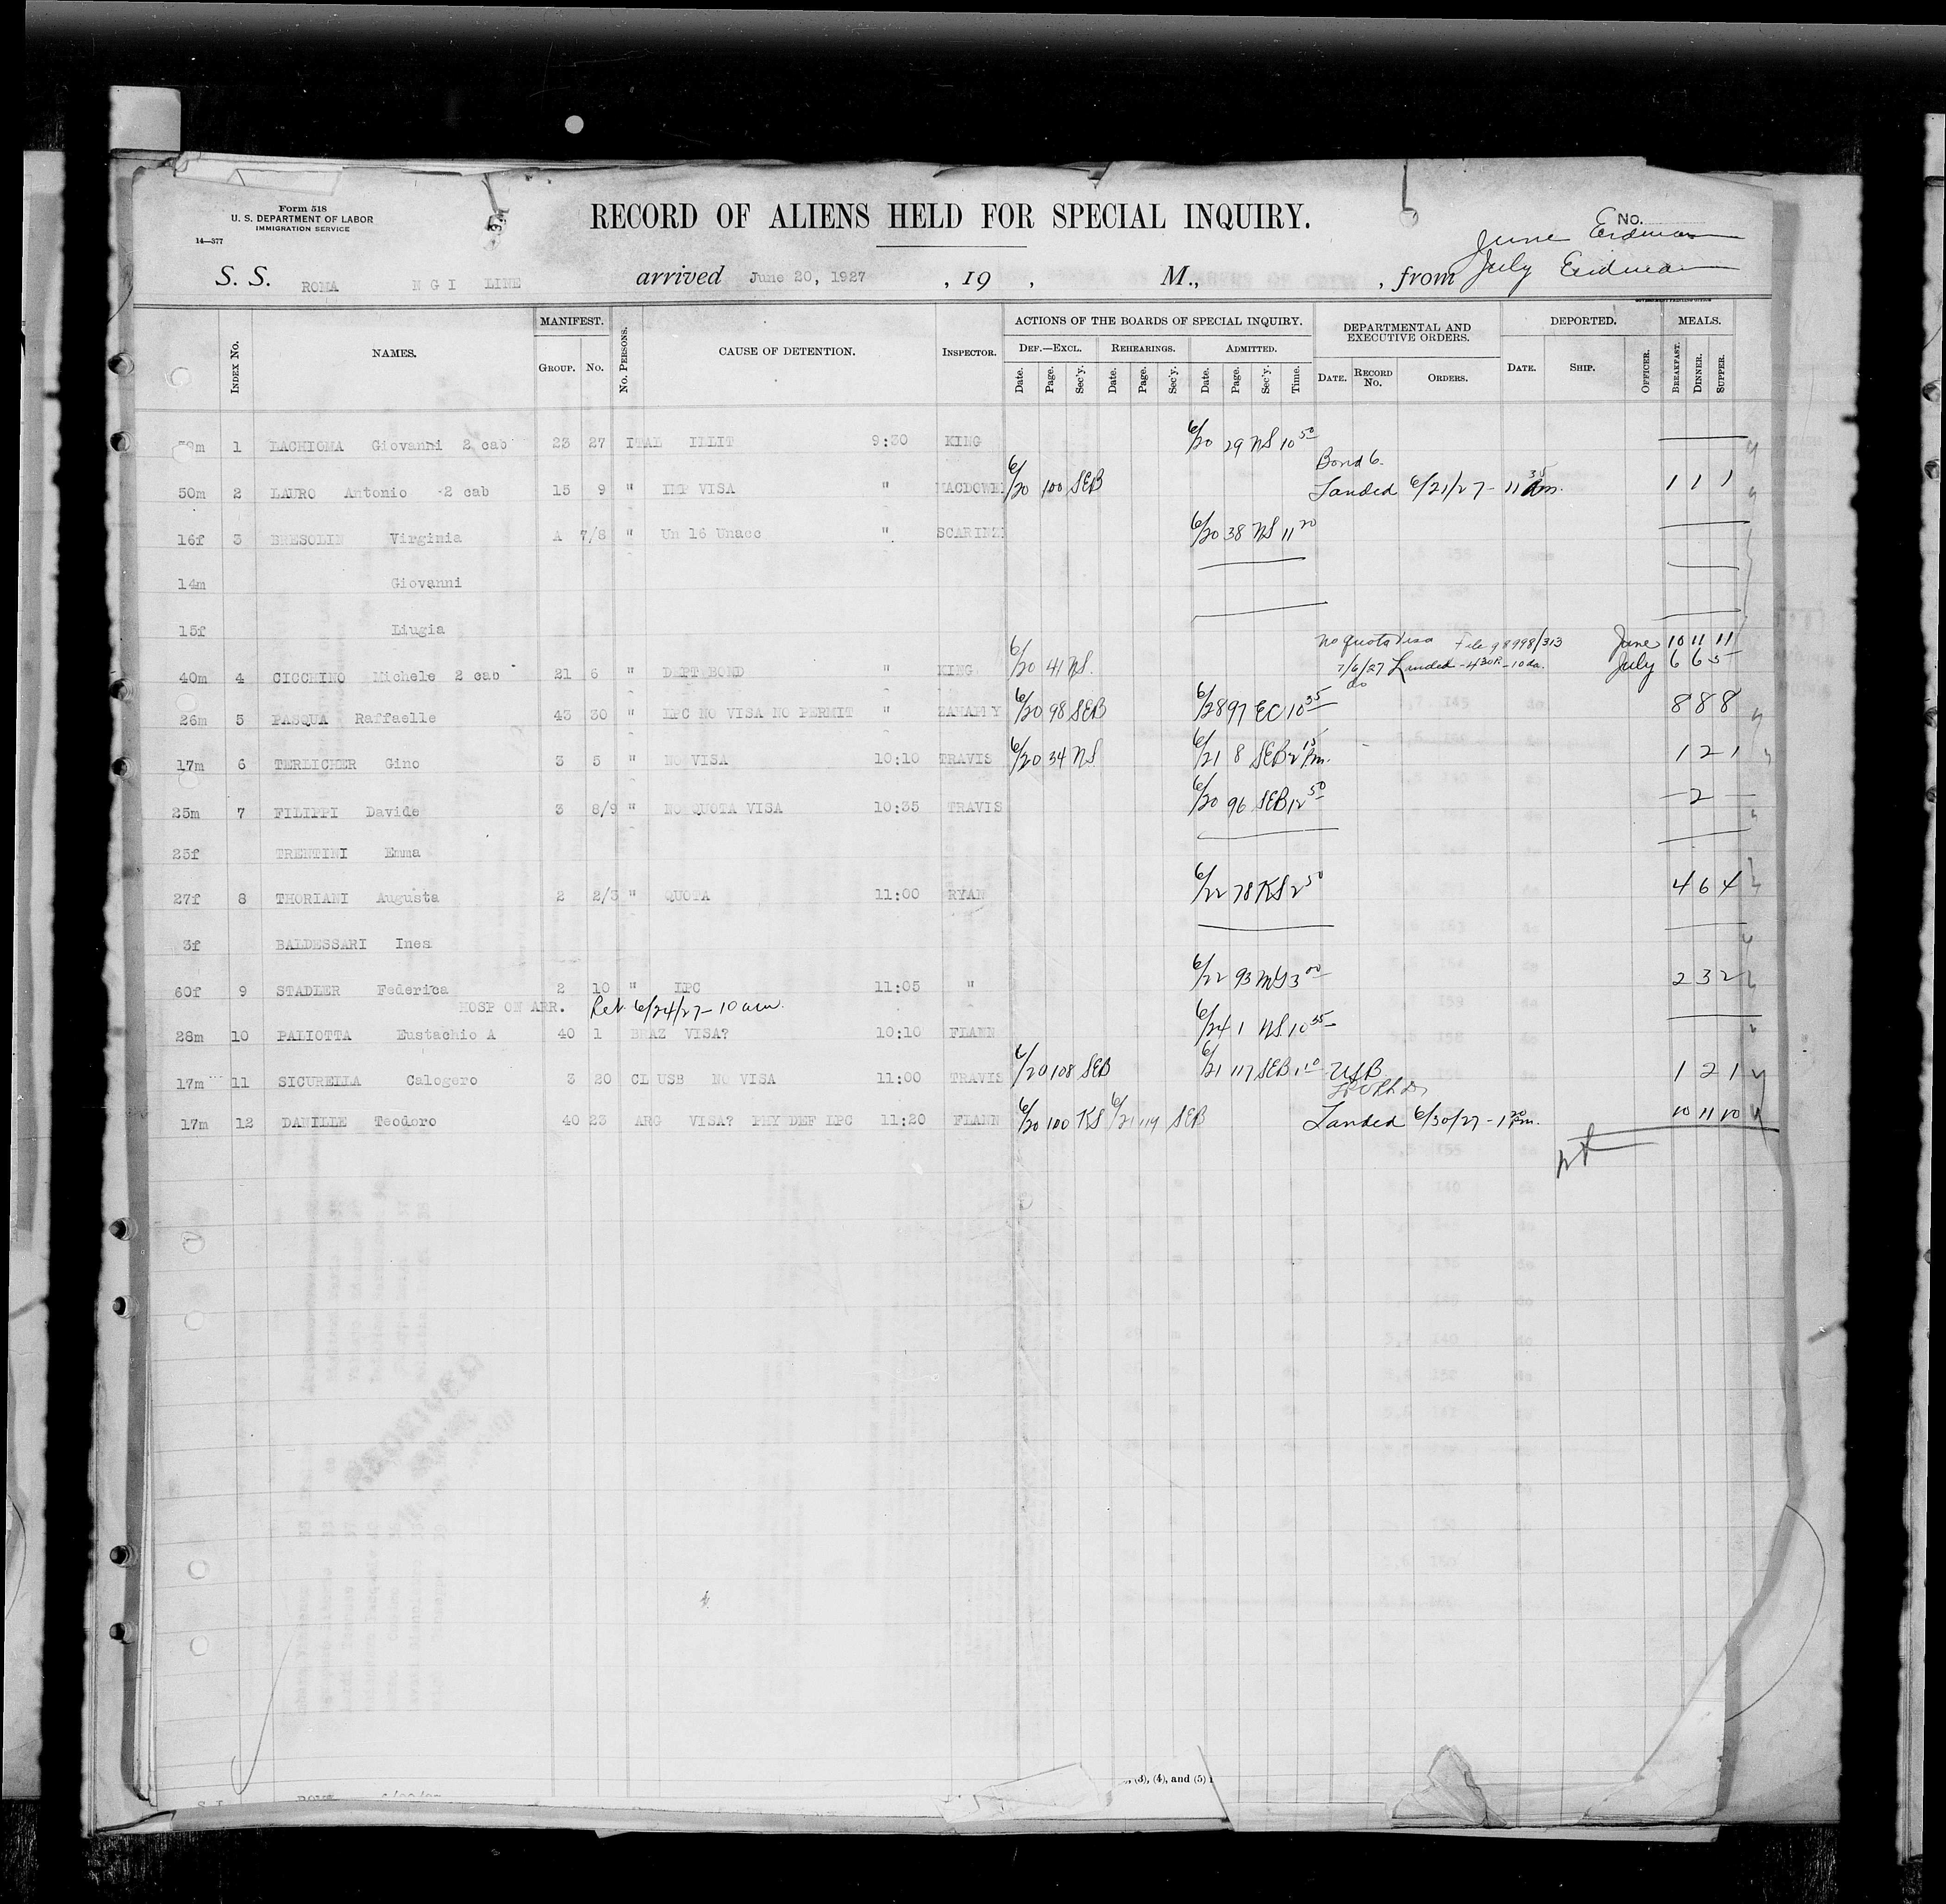 Form 518
U. S. DEPARTMENT OF LABOR
IMMIGRATION SERVICE
14—377
RECORD OF ALIENS HELD FOR SPECIAL INQUIRY.
No.
June Erdman
July Erdman
S. S. ROMA N G I LINE arrived June 20, 1927, 19 , M., , from
INDEX No. NAMES. MANIFEST. GROUP. No. No. PERSONS. CAUSE OF DETENTION. INSPECTOR. ACTIONS OF THE BOARDS OF SPECIAL INQUIRY. DEF.—EXCL. Date. Page. Sec'y. REHEARINGS. Date. Page. Sec'y. ADMITTED. Date. Page. Sec'y. Time. DEPARTMENTAL AND EXECUTIVE ORDERS. DATE. RECORD No. ORDERS. DEPORTED. DATE. SHIP. OFFICER. MEALS. BREAKFAST. DINNER. SUPPER.
1 LACHIOMA Giovanni 2 cab 23 27 ITAL ILLIT 9:30 KING 6/20 29 NS 10 50
Bond 6.
50m 2 LAURO Antonio 2 cab 15 9 " IMP VISA " MACDOWE 6/20 100 SEB Landed 6/21/27 - 11 35 am. 1 1 1
16f 3 BRESOLIN Virginia A 7/8 " Un 16 Unacc " SCARINZ 6/20 38 NS 11 20
14m Giovanni
15f Liugia
No quota visa File 98998/313 June 10 11 11
40m 4 CICCHINO Michele 2 cab 21 6 " DEPT BOND " KING 6/20 41 NS. 7/6/27 Landed - 4 30 P - 10 da. July 6 6 5
do
26m 5 PASQUA Raffaelle 43 30 " LPC NO VISA NO PERMIT " 6/20 98 SEB 6/28 97 EC 10 35 8 8 8
17m 6 TERLICHER Gino 3 5 " NO VISA 10:10 TRAVIS 6/20 34 NS 6/21 8 SEB 2 15 Pm. 1 2 1
25m 7 FILIPPI Davide 3 8/9 " NO QUOTA VISA 10:35 TRAVIS 6/20 96 SEB 12 50 — 2 —
25f TRENTINI Emma
27f 8 THORIANI Augusta 2 2/3 " QUOTA 11:00 RYAN 6/22 78 KS 2 50 4 6 4
3f BALDESSARI Ines
60f 9 STADLER Federica 2 10 " LPC 11:05 " 6/22 93 3 00 2 3 2
HOSP ON ARR. Ret. 6/24/27 - 10 am.
28m 10 PALIOTTA Eustachio A 40 1 BRAZ VISA? 10:10 FLANN 6/24 1 NS 10 35
17m 11 SICURELLA Calogero 3 20 CL USB NO VISA 11:00 TRAVIS 6/20 108 SEB 6/21 117 SEB 1 10 USB 1 2 1
17m 12 DANILLE Teodoro 40 23 ARG VISA? PHY DEF LPC 11:20 FLANN 6/20 100 KS 6/21 119 SEB Landed 6/30/27 - 1 20 Pm. 10 11 10
, (3), (4), and (5)